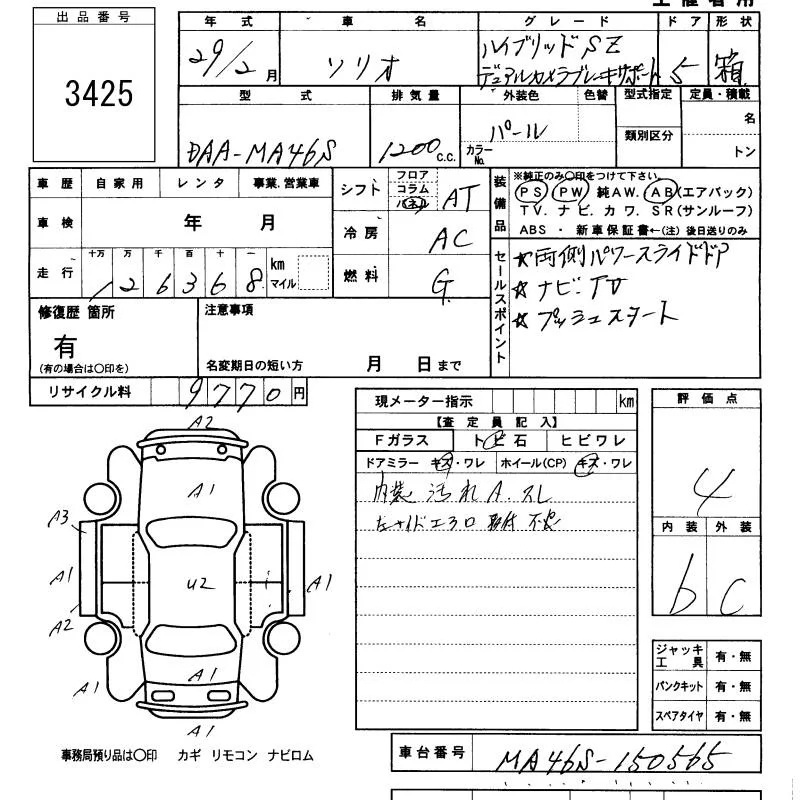 出品番号
3425
年式 車名 グレード ドア 形状
29/2月 ソリオ ハイブリッドSZ デュアルカメラブレーキサポート 5 箱
型式 排気量 外装色 色替 型式指定 定員・積載
DAA-MA46S 1200 C.C. パール カラーNo. 類別区分 名 トン
車歴 自家用 レンタ 事業.営業車
車検 年 月
走行 十万 万 千 百 十 一 km マイル
126368
シフト フロア コラム パネル AT
冷房 AC
燃料 G
装備品
※純正のみ○印をつけて下さい。
PS PW 純AW. AB(エアバック)
TV. ナビ. カワ. SR(サンルーフ)
ABS ・ 新車保証書←(注) 後日送りのみ
セールスポイント
☆両側パワースライドドア
☆ナビ・TV
☆プッシュスタート
修復歴 箇所
有
(有の場合は○印を)
注意事項
名変期日の短い方 月 日まで
リサイクル料 9770円
現メーター指示 km
【査定員記入】
Fガラス トビ石 ヒビワレ
ドアミラー キズ・ワレ ホイール(CP) キズ・ワレ
内装 汚れ A.スレ
評価点
4
内装 外装
b C
A2
A1
A3
A1
U2
A1
A2
A1
A1
A1
A1
ジャッキ工具 有・無
パンクキット 有・無
スペアタイヤ 有・無
事務局預り品は○印 カギ リモコン ナビロム
車台番号 MA46S-150565